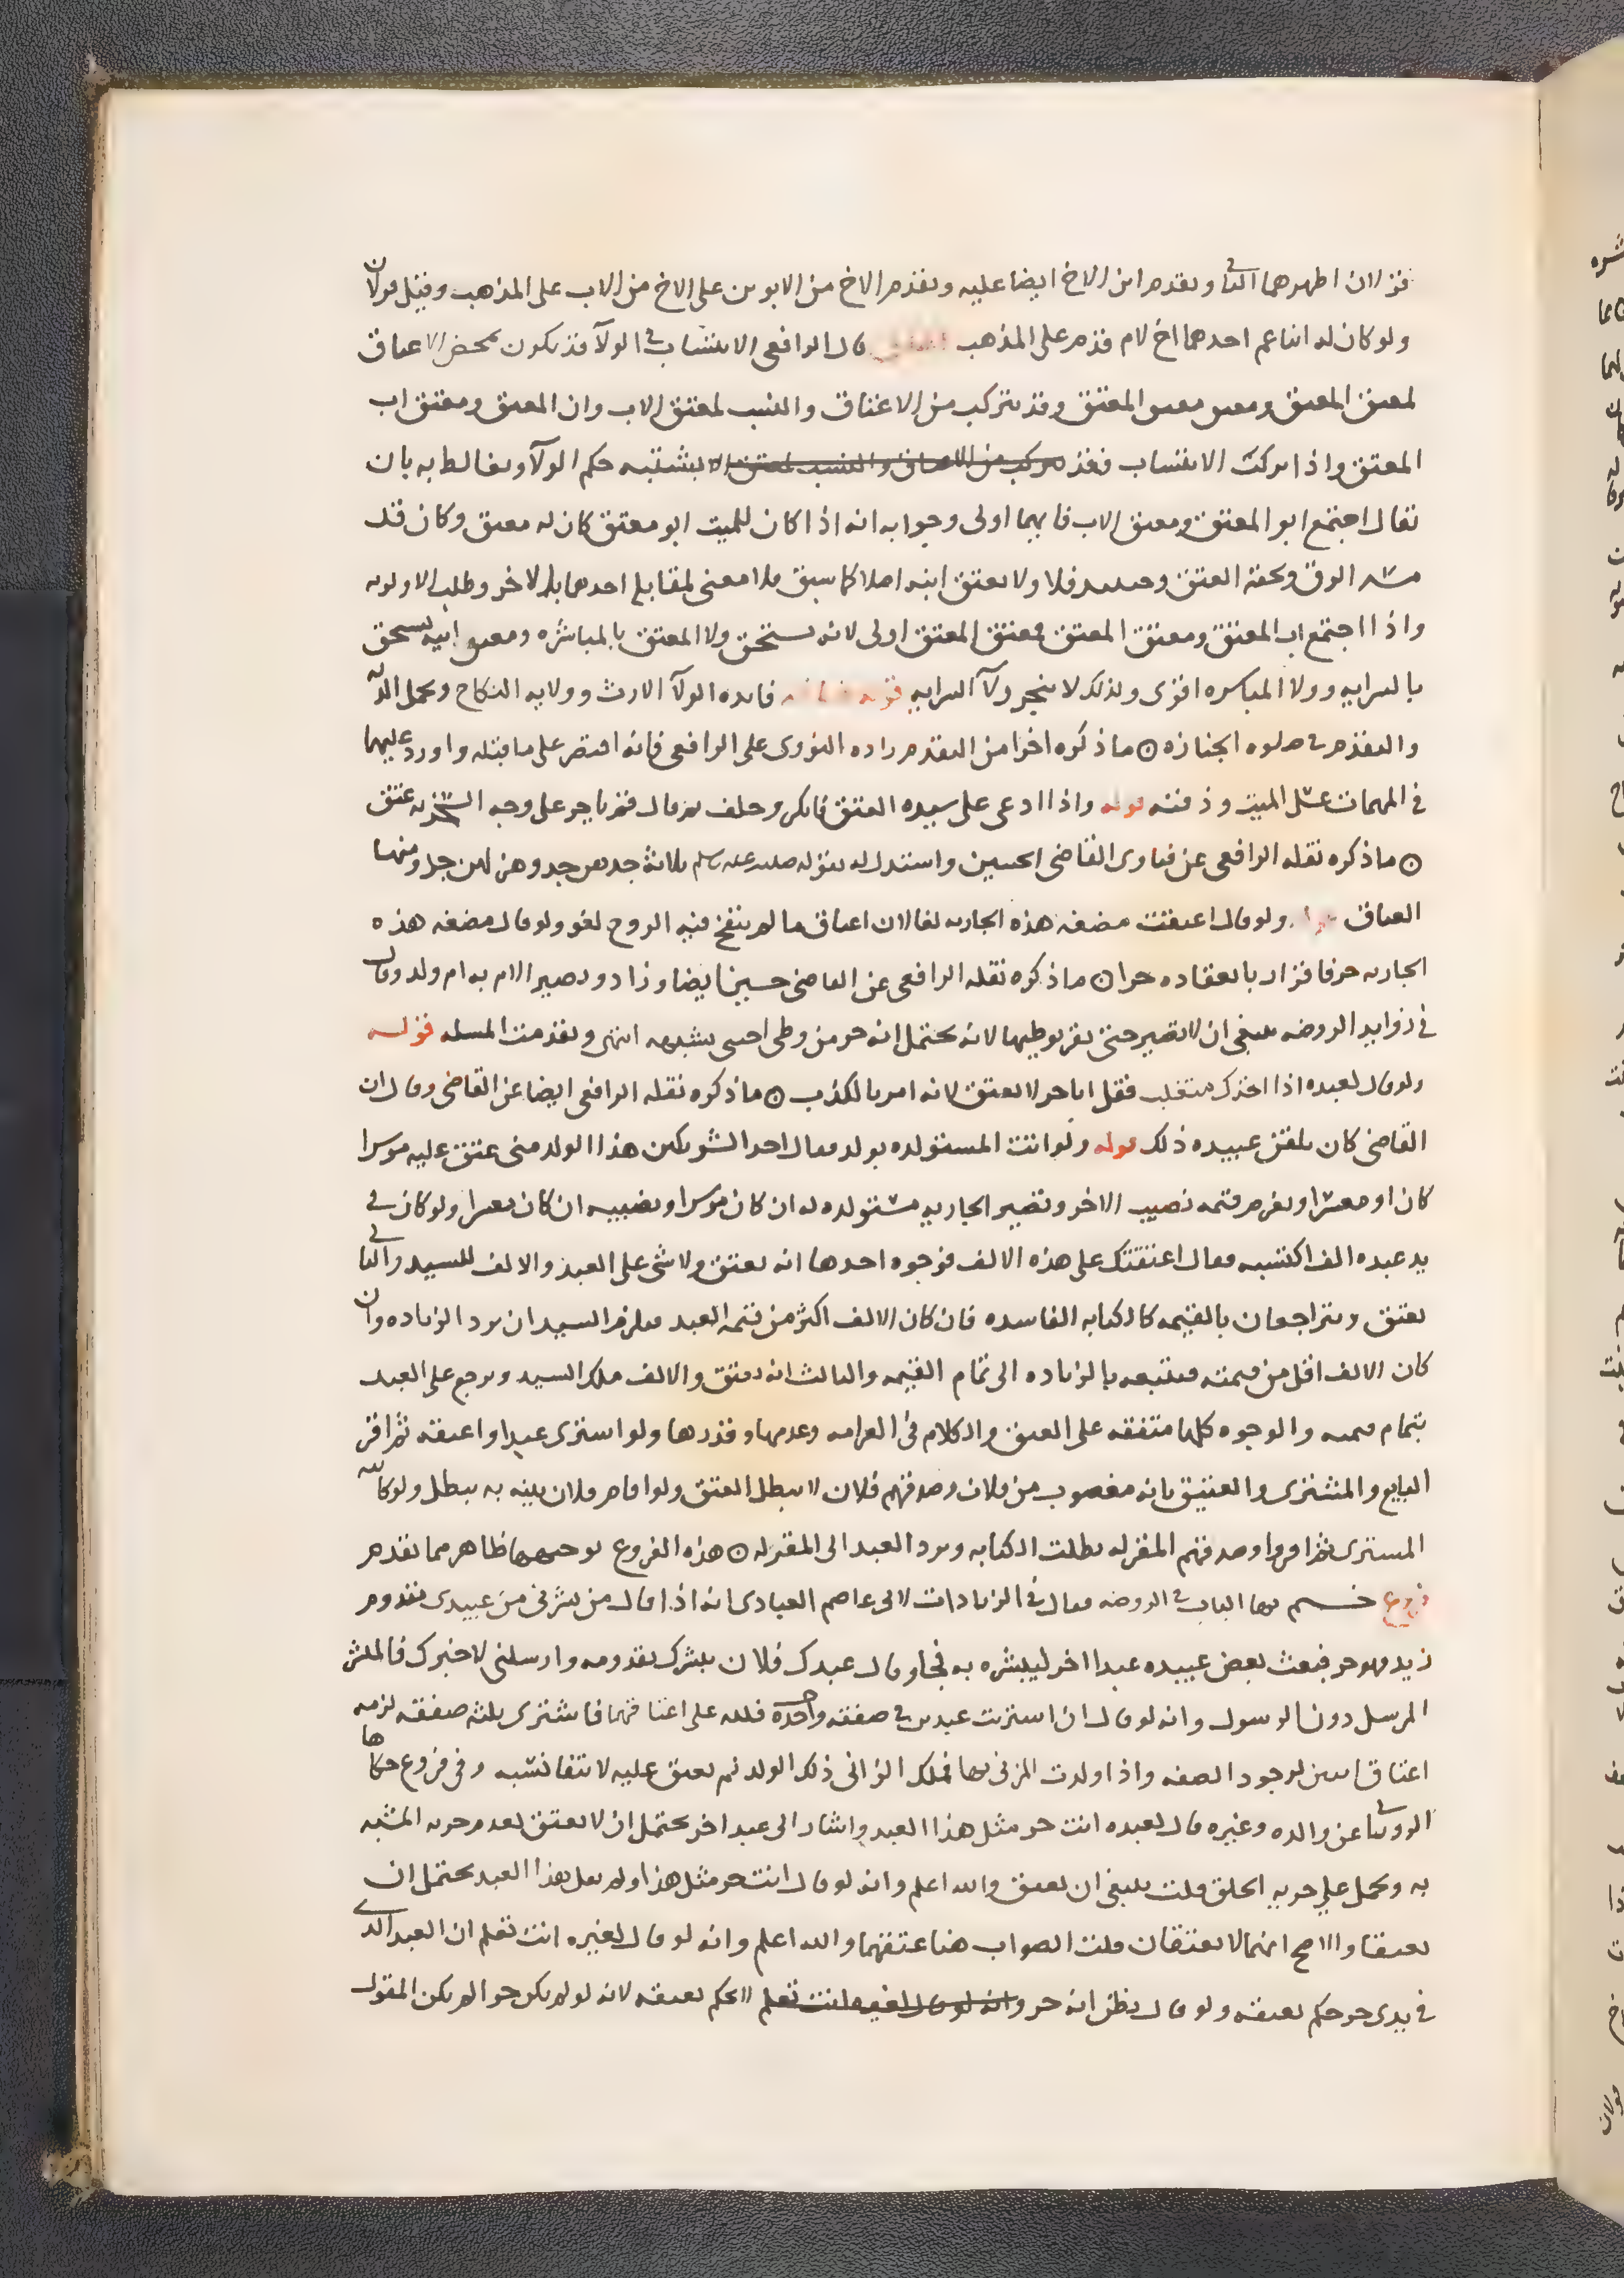 قولان اظهرهما الثاني ويقدم ابن الاخ ايضا عليه ويقدم الاخ من الابوين على الاخ من الاب على المذهب وقيل قولان
ولو كان له ابنا عم احدهما اخ لام قدم على المذهب قال الرافعي الانتساب في الولآ قد يكون بمحض الاعتاق
لمعتق المعتق ومعتق معتق المعتق وقد يتركب من الاعتاق والنسب لمعتق الاب وابن المعتق ومعتق اب
المعتق واذا تركب الانتساب فقد يشتبه حكم الولآ ويغالط به بان
يقال اجتمع ابو المعتق ومعتق الاب فايهما اولى وجوابه انه اذا كان للميت ابو معتق كان له معتق وكان قد
مسه الرق ولحقه العتق وحينئذ فلا ولا لمعتق ابيه اصلا كما سبق فلا معنى لمقابلة احدهما بالاخر وطلب الاولويه
واذا اجتمع اب المعتق ومعتق المعتق فمعتق المعتق اولى لانه يستحق ولا المعتق بالمباشره ومعتق ابيه يستحق
بالسرايه وولا المباشره اقوى ولذلك لا ينجر ولآ السرايه فايده الولآ الارث وولايه النكاح وتحمل الديه
والتقدم في صلوه الجنازه ۞ ما ذكره اخرا من التقدم زاده النووي على الرافعي فانه اقتصر على ما قبله واورد عليهما
في المهمات غسل الميت ودفنه قوله واذا ادعى على سيده العتق فانكر وحلف ثم قال قم يا حر على وجه السخريه عتق
۞ ما ذكره نقله الرافعي عن فتاوى القاضي الحسين واستدل له بقوله صلى الله عليه وسلم ثلاثة جدهن جد وهزلهن جد ومنها
العتاق ولو قال اعتقت مضغه هذه الجاريه لغا لان اعتاق ما لم ينفخ فيه الروح لغو ولو قال مضغه هذه
الجاريه حر فاقرار بانعقاده حرا ۞ ما ذكره نقله الرافعي عن القاضي حسين ايضا وزاد وتصير الام به ام ولد وقال
في زوايد الروضه ينبغي ان لا تصير حتى يقر بوطيها لانه يحتمل انه حر من وطي اجنبي بشبهه انتهى وتقدمت المسله قوله
ولو قال لعبده اذا اخذك متغلب فقل انا حر لا يعتق لانه امر بالكذب ۞ ما ذكره نقله الرافعي ايضا عن القاضي وقال ان
القاضي كان يلقن عبيده ذلك قوله ولو اتت المستولده بولد فقال احد الشريكين هذا الولد مني عتق عليه موسرا
كان او معسرا ويغرم قيمه نصيب الاخر وتصير الجاريه مستولده له ان كان موسرا ونصيبه ان كان معسرا ولو كان في
يد عبده الف اكتسبه فقال اعتقتك على هذه الالف فوجوه احدها انه يعتق ولا شي على العبد والالف للسيد والثاني
يعتق ويتراجعان بالقيمه كالكتابه الفاسده فان كان الالف اكثر من قيمه العبد فيلزم السيد ان يرد الزياده وان
كان الالف اقل من قيمته فيتبعه بالزياده الى تمام القيمه والثالث انه يعتق والالف ملك السيد ويرجع على العبد
بتمام قيمته والوجوه كلها متفقه على العتق والكلام في الغرامه وعدمها وقدرها ولو اشترى عبدا واعتقه ثم اقر
البايع والمشتري والعتيق بانه مغصوب من فلان وصدقهم فلان لا يبطل العتق ولو اقام فلان بينه به يبطل ولو كاتبه
المشتري ثم اقروا وصدقهم المقر له بطلت الكتابه ويرد العبد الى المقر له ۞ هذه الفروع توجيهها ظاهر مما تقدم
فروع ختم بها الباب في الروضه فقال في الزيادات لابي عاصم العبادي انه اذا قال من بشرني من عبيدي بقدوم
زيد فهو حر فبعث بعض عبيده عبدا اخر ليبشره به فجا وقال عبدك فلان يبشرك بقدومه وارسلني لاخبرك فالمبشر
المرسل دون الرسول وانه لو قال ان اشتريت عبدين في صفقه واحدة فلله علي اعتاقهما فاشترى ثلثه صفقه لزمه
اعتاق اثنين لوجود الصفه واذا ولدت المزني بها فملك الزاني ذلك الولد لم يعتق عليه لانتفا نسبه وفي فروع حكاها
الروياني عن والده وغيره قال لعبده انت حر مثل هذا العبد واشار الى عبد اخر يحتمل ان لا يعتق لعدم حريه المشبه
به ويحمل على حريه الخلق قلت ينبغي ان يعتق والله اعلم وانه لو قال انت حر مثل هذا ولم يقل هذا العبد يحتمل ان
يعتقا والاصح انهما لا يعتقان قلت الصواب هنا عتقهما والله اعلم وانه لو قال لغيره انت تعلم ان العبد الذي
في يدي حر حكم بعتقه ولو قال تظن انه حر لا يحكم بعتقه لانه لو لم يكن حرا لم يكن المقول